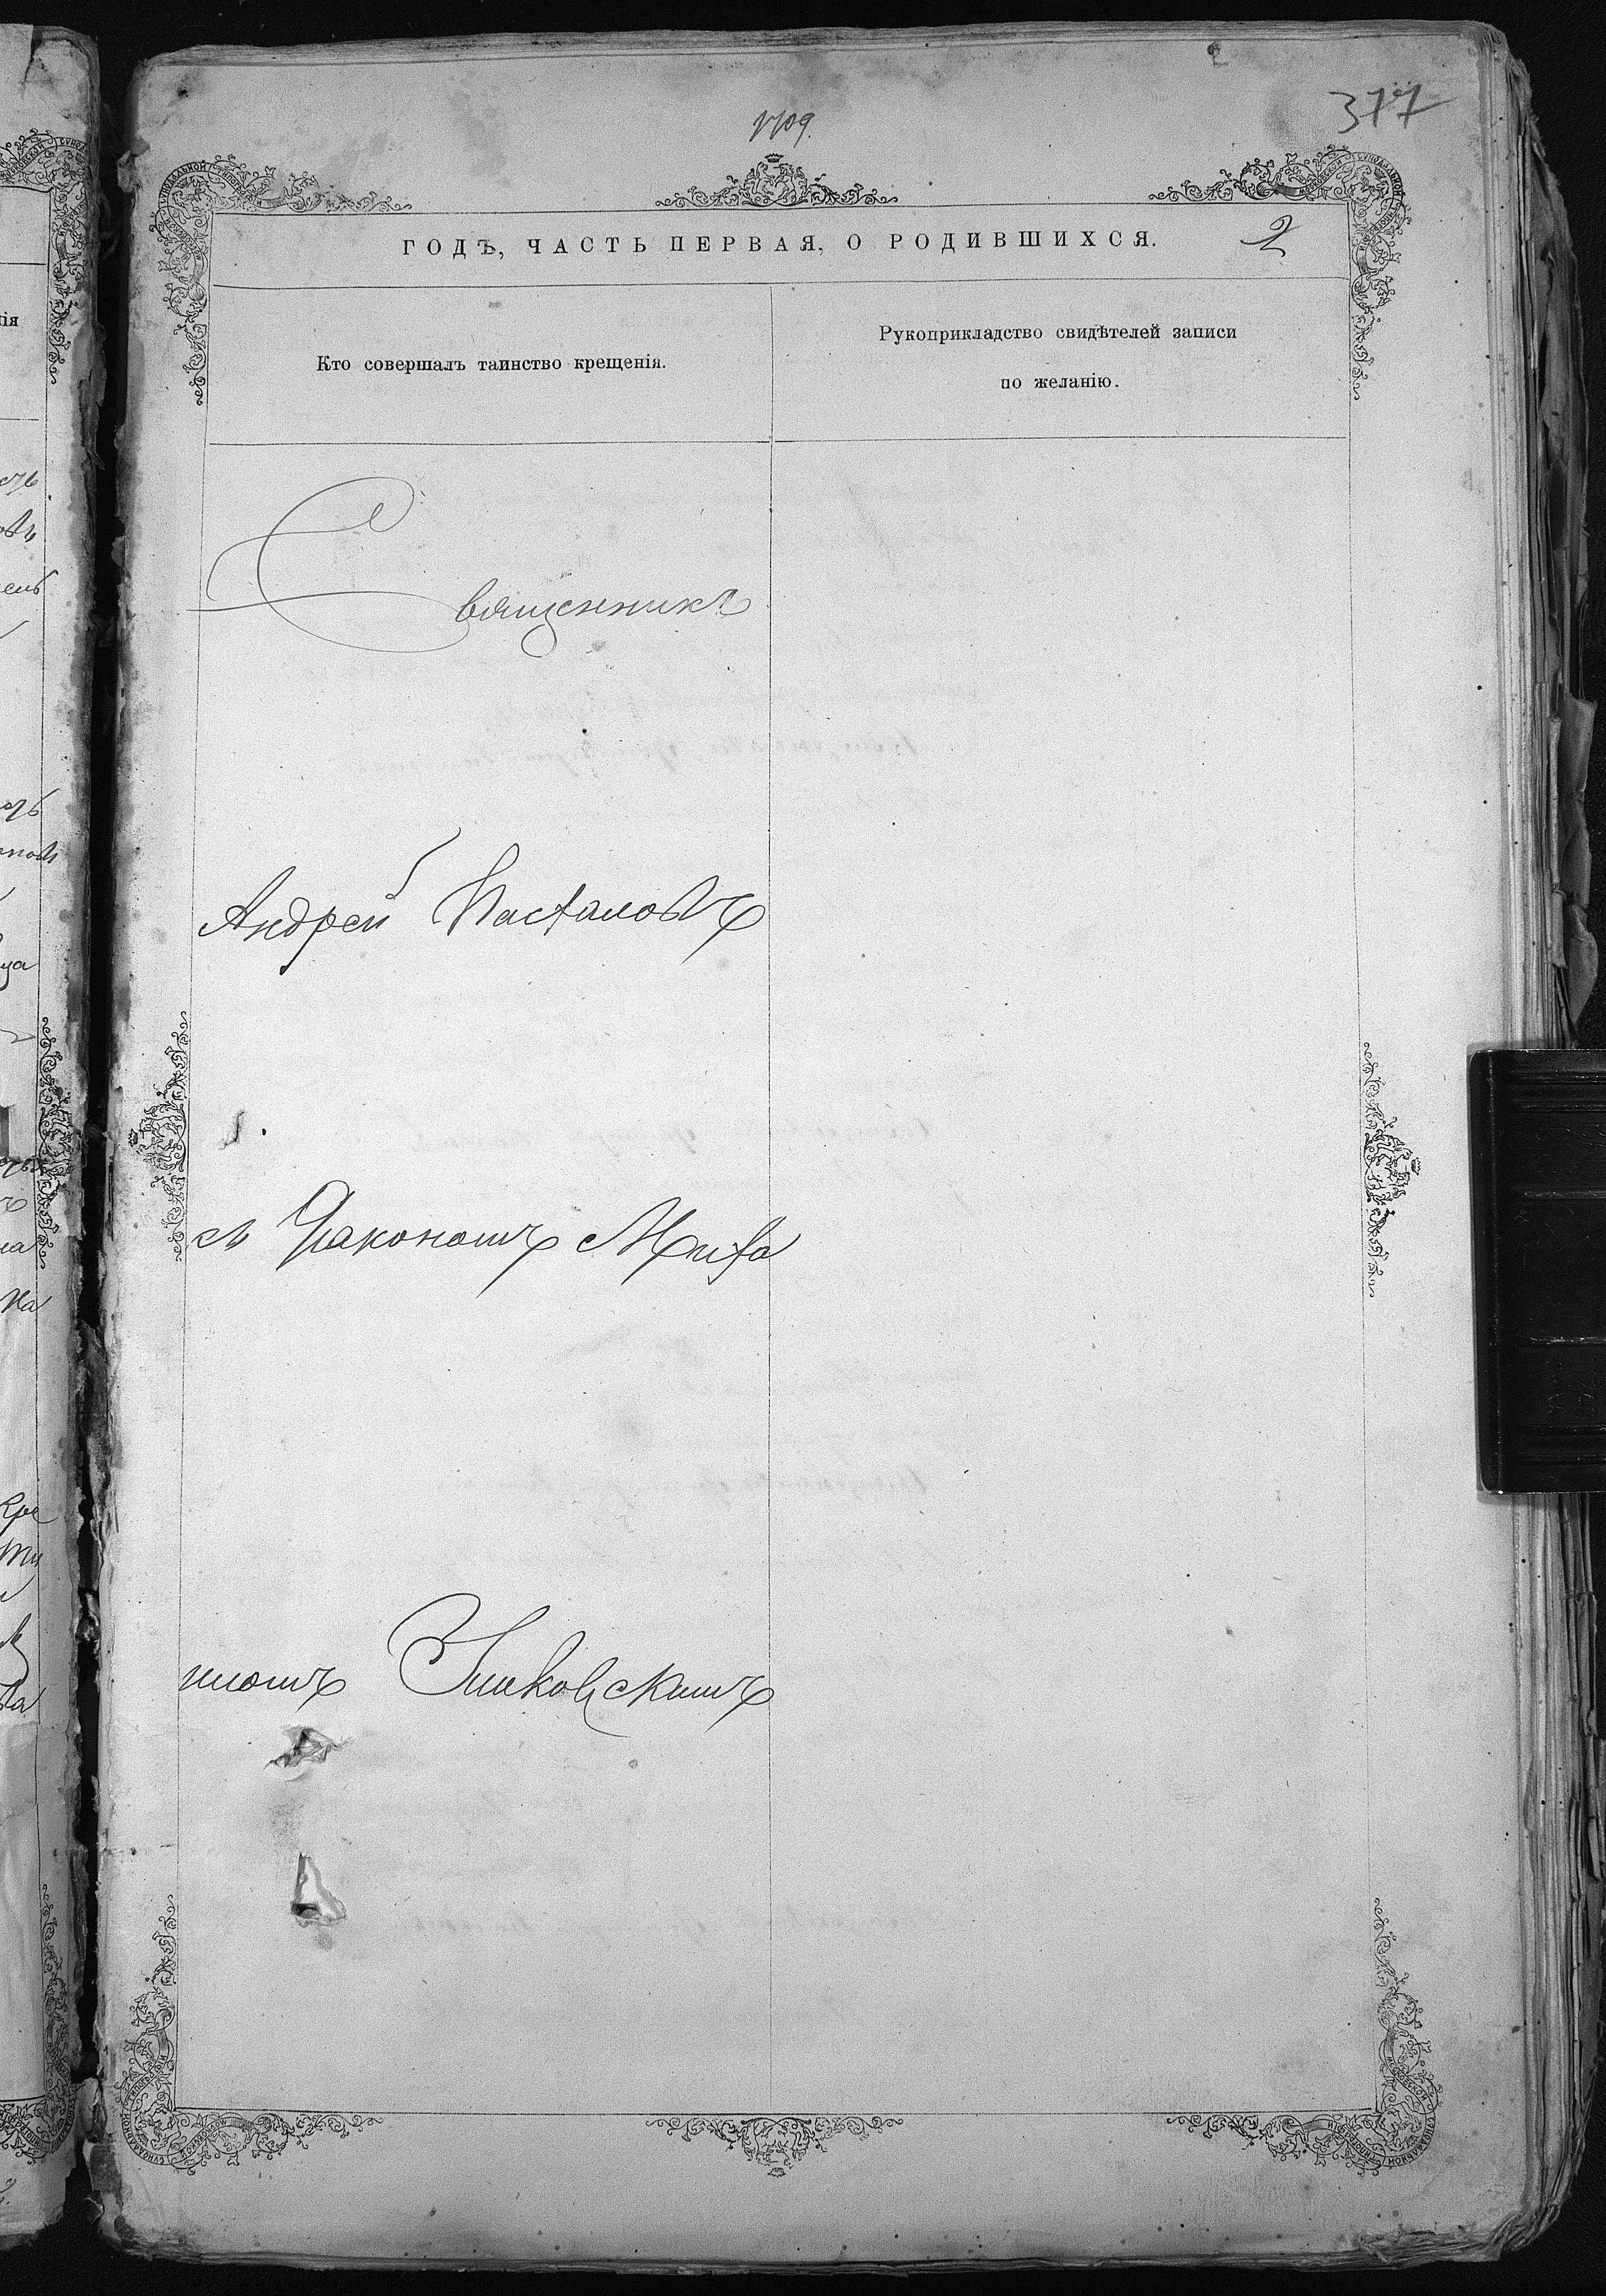 377
1709.
ГОДЪ, ЧАСТЬ ПЕРВАЯ, О РОДИВШИХСЯ.
2
Кто совершалъ таинство крещенія.
Рукоприкладство свидѣтелей записи
по желанію.
Священникъ
Андрей
съ Діакономъ Митро
Зиньковскимъ